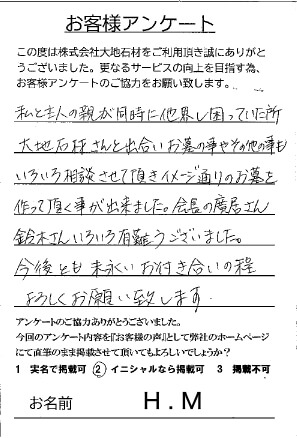 お客様アンケート
この度は株式会社大地石材をご利用頂き誠にありがと
うございました。更なるサービスの向上を目指す為、
お客様アンケートのご協力をお願い致します。
私と主人の親が同時に他界し困っていた所
大地石材さんと出合いお墓の事やその他の事も
いろいろ相談させて頂きイメージ通りのお墓を
作って頂く事が出来ました。会長の廣居さん
鈴木さんいろいろ有難うございました。
今後とも末永いお付き合いの程
よろしくお願い致します。
アンケートのご協力ありがとうございました。
今回のアンケート内容を『お客様の声』として弊社のホームページ
にて直筆のまま掲載させて頂いてもよろしいでしょうか？
1 実名で掲載可 ② イニシャルなら掲載可 3 掲載不可
お名前 H.M